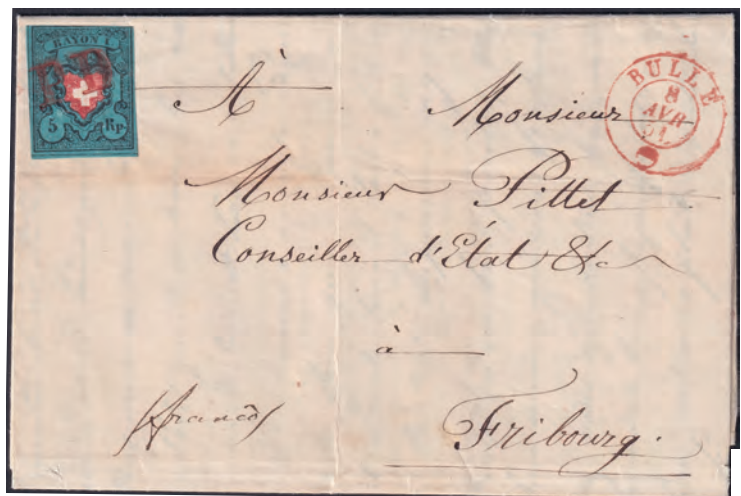 RAYON I.
P.P.
5 Rp.
BULLE
8
AVR
51
À Monsieur
Monsieur Pittet
Conseiller d'État &c
à
franco
Fribourg.